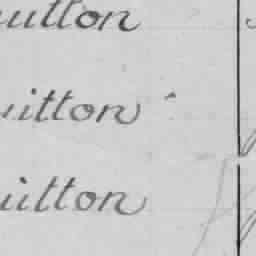 uitton
uitton
uitton